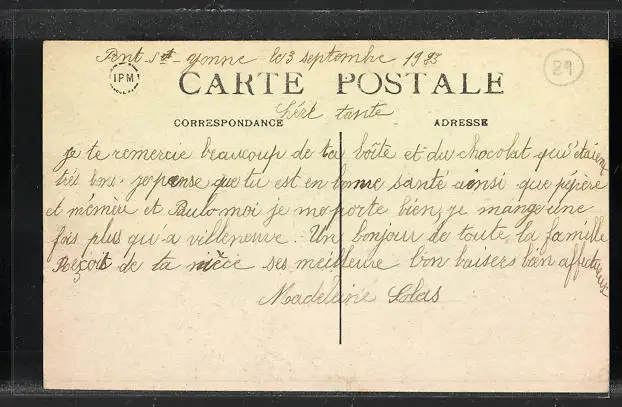 Pont-st-yonne le 3 septembre 1923
IPM
89
CARTE POSTALE
chère tante
CORRESPONDANCE ADRESSE
je te remercie beaucoup de ta boîte et du chocolat qu'étaient
très bons. je pense que tu est en bonne santé ainsi que pépère
et mémère et Paulo moi je me porte bien, je mange une
fois plus qu'a villeneuve. Un bonjour de toute la famille
Reçoit de ta nièce ses meilleure bon baisers bien affectueux
Madeleine